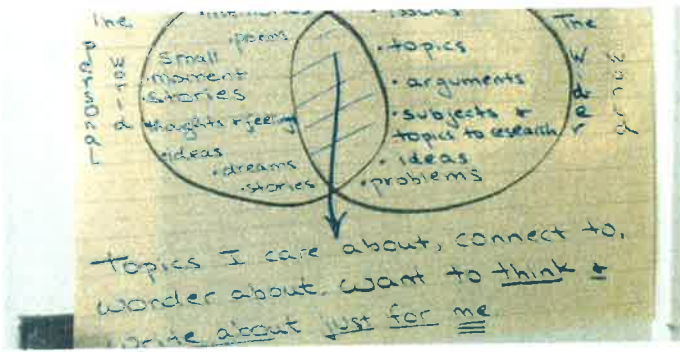 The
PERSONAL
World
·poems
small
·moment
stories
thoughts & feelings
·ideas
·dreams
·stories
·issues
·topics
·arguments
·subjects &
topics to research
·ideas
·problems
The
wider
world
Topics I care about, connect to,
wonder about, want to think &
write about just for me